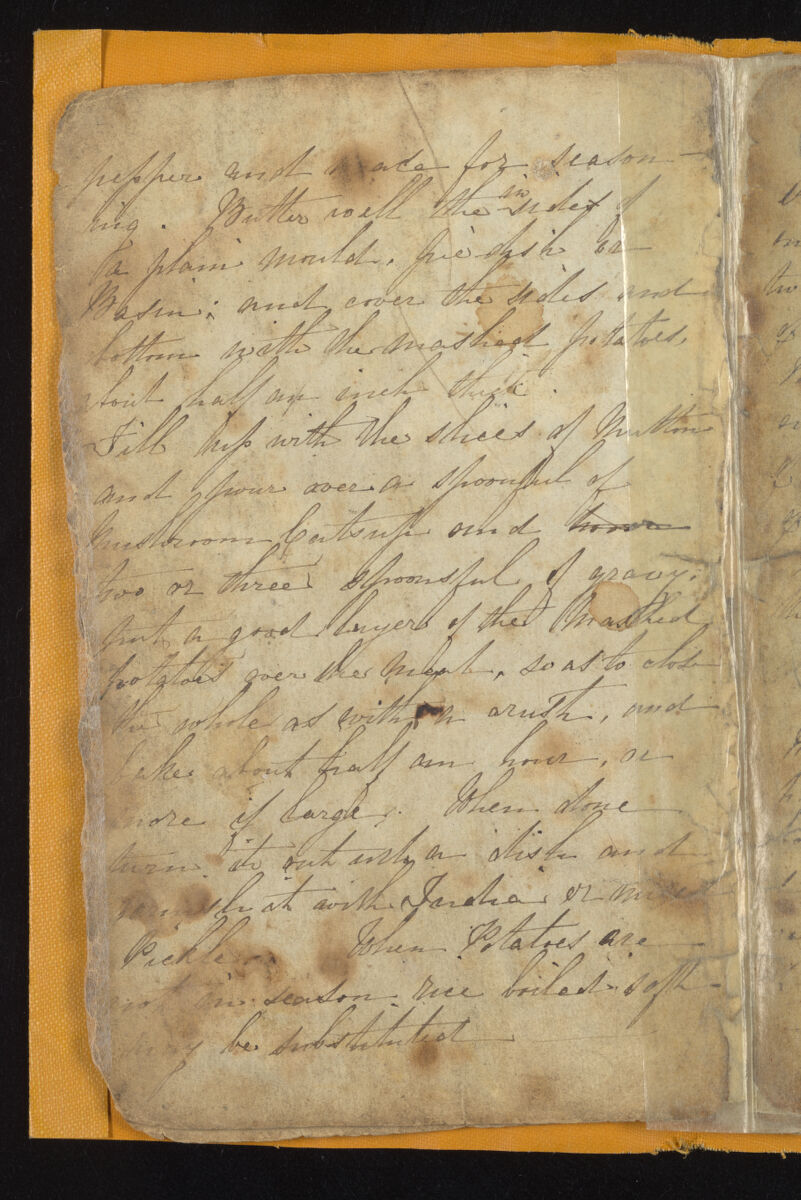 pepper and mace for season-
ing. Butter well the in sides of
a plain mould, pie dish or
Basin; and cover the sides and
bottom with the mashed potatoes,
about half an inch thick.
Fill up with the slices of Mutton
and pour over a spoonful of
Mushroom Catsup and
two or three spoonsful of gravy;
put a good layer of the Mashed
potatoes over the meat, so as to close
the whole as with a crust, and
bake about half an hour, or
more if large. When done
turn it out into a dish and
garnish it with India or mixed
Pickles. When Potatoes are
not in season rice boiled soft
may be substituted